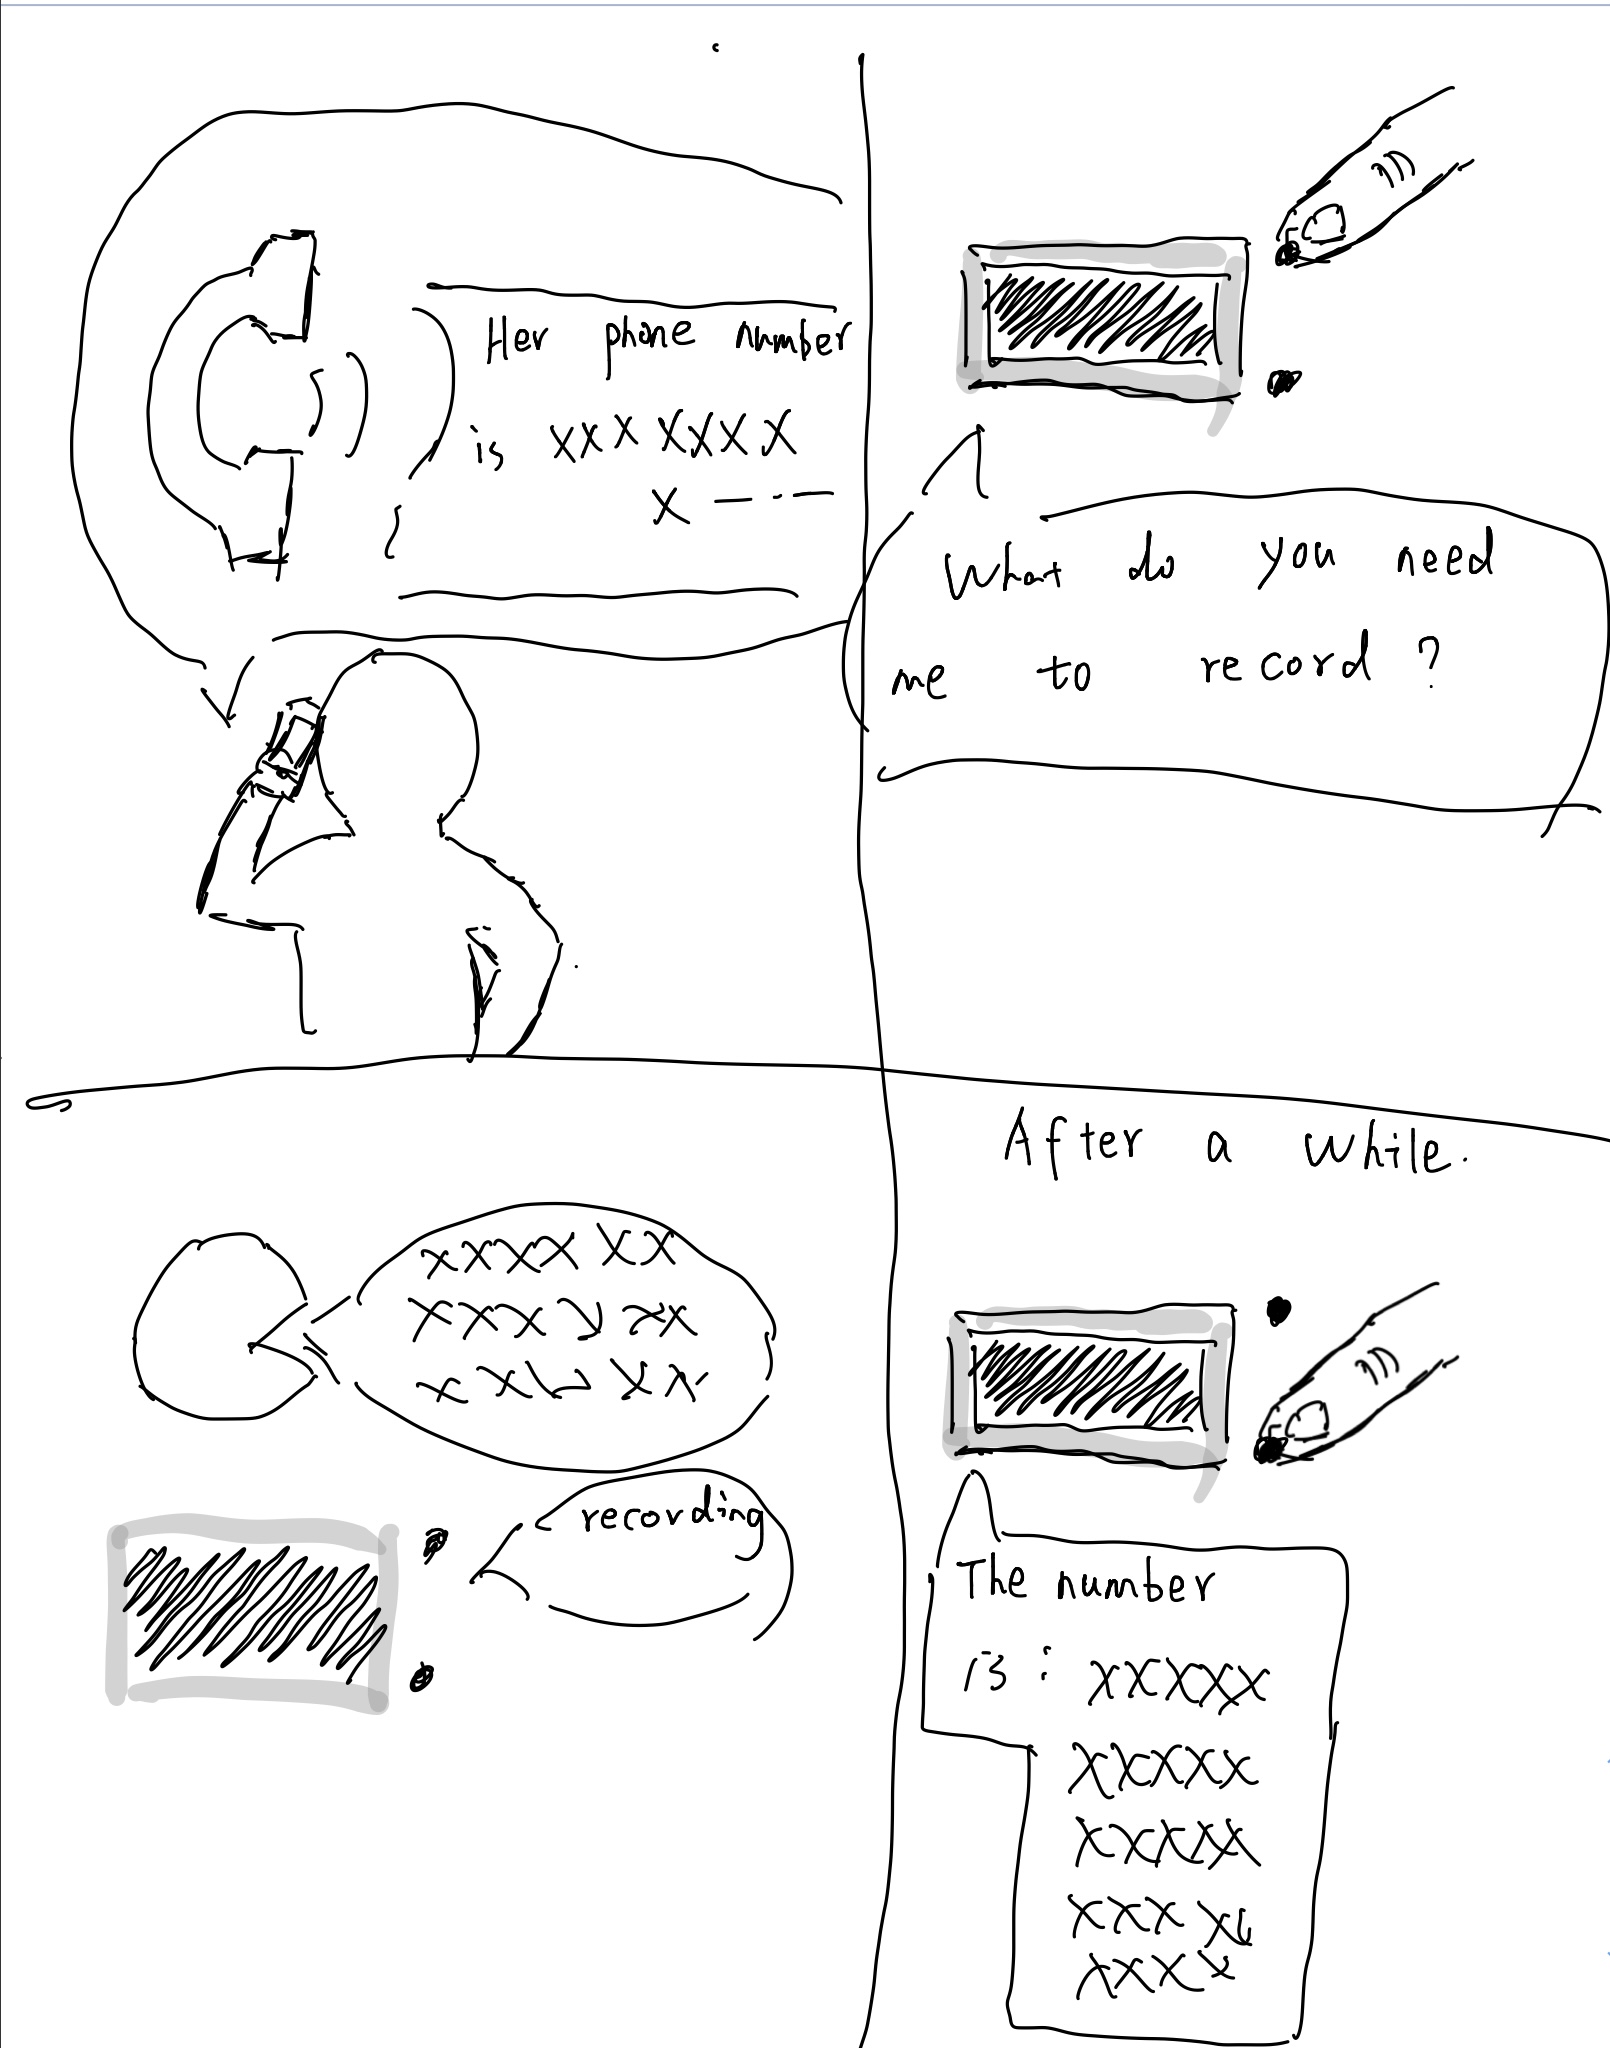 Her phone number
is xxx xxxx
x — · —
What do you need
me to record ?
xxxx xx
recording
After a while.
The number
is : xxxxx
xxxxx
xxxxx
xxx
xxxx